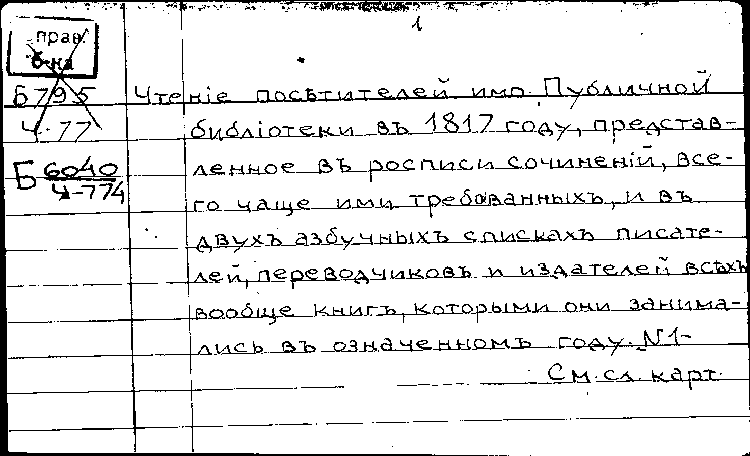 1
прав.
б-ка
Б795
Ч-77
Б 6040
Ч-774
Чтенiе посѣтителей имп. Публичной
библiотеки въ 1817 году, представ-
ленное въ росписи сочиненiй, все-
го чаще ими требованныхъ, и въ
двухъ азбучныхъ спискахъ писате-
лей, переводчиковъ и издателей всѣхъ
вообще книгъ, которыми они занима-
лись въ означенномъ году. N1-
См. сл. карт.